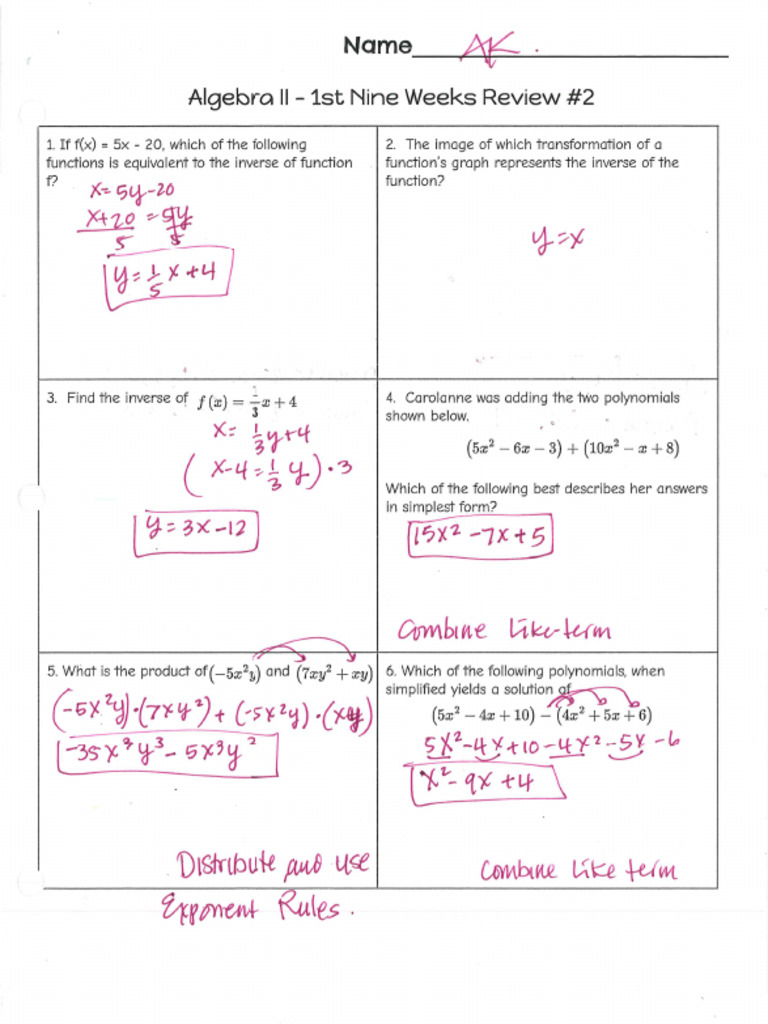 Name AK.
Algebra II - 1st Nine Weeks Review #2
1. If f(x) = 5x - 20, which of the following
functions is equivalent to the inverse of function
f?
x = 5y - 20
x+20 = 5y
5 5
y = 1/5 x + 4
2. The image of which transformation of a
function's graph represents the inverse of the
function?
y = x
3. Find the inverse of f(x) = -/3 x + 4
x = 1/3 y + 4
(x - 4 = 1/3 y) · 3
y = 3x - 12
4. Carolanne was adding the two polynomials
shown below.
(5x² − 6x − 3) + (10x² − x + 8)
Which of the following best describes her answers
in simplest form?
15x² - 7x + 5
Combine like-term
5. What is the product of (−5x²y) and (7xy² + xy)
(-5x²y)·(7xy²) + (-5x²y)·(xy)
-35x³y³ - 5x³y²
Distribute and use
Exponent Rules.
6. Which of the following polynomials, when
simplified yields a solution of
(5x² − 4x + 10) − (4x² + 5x + 6)
5x² - 4x + 10 - 4x² - 5x - 6
x² - 9x + 4
Combine like term